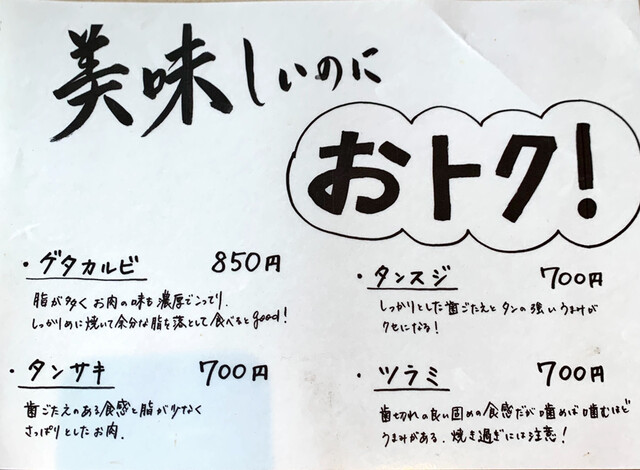 美味しいのに
おトク!
・ゲタカルビ 850円
脂が多くお肉の味も濃厚でこってり。
しっかりめに焼いて余分な脂を落として食べるとgood!
・タンスジ 700円
しっかりとした歯ごたえとタンの強いうまみが
クセになる!
・タンサキ 700円
歯ごたえのある食感と脂が少なく
さっぱりとしたお肉.
・ツラミ 700円
歯切れの良い固めの食感だが噛めば噛むほど
うまみがある.焼き過ぎには注意!